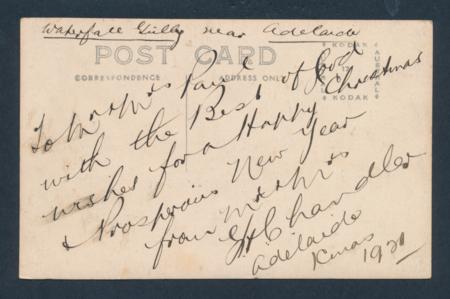 Waterfall Gully near Adelaide
POST CARD
CORRESPONDENCE
ADDRESS ONLY
KODAK
AUSTRAL
KODAK
To Mr & Mrs
with the Best of Good
wishes for a Happy Christmas
& Prosperous New Year
from Mr & Mrs
Chandler
Adelaide
Xmas
1921